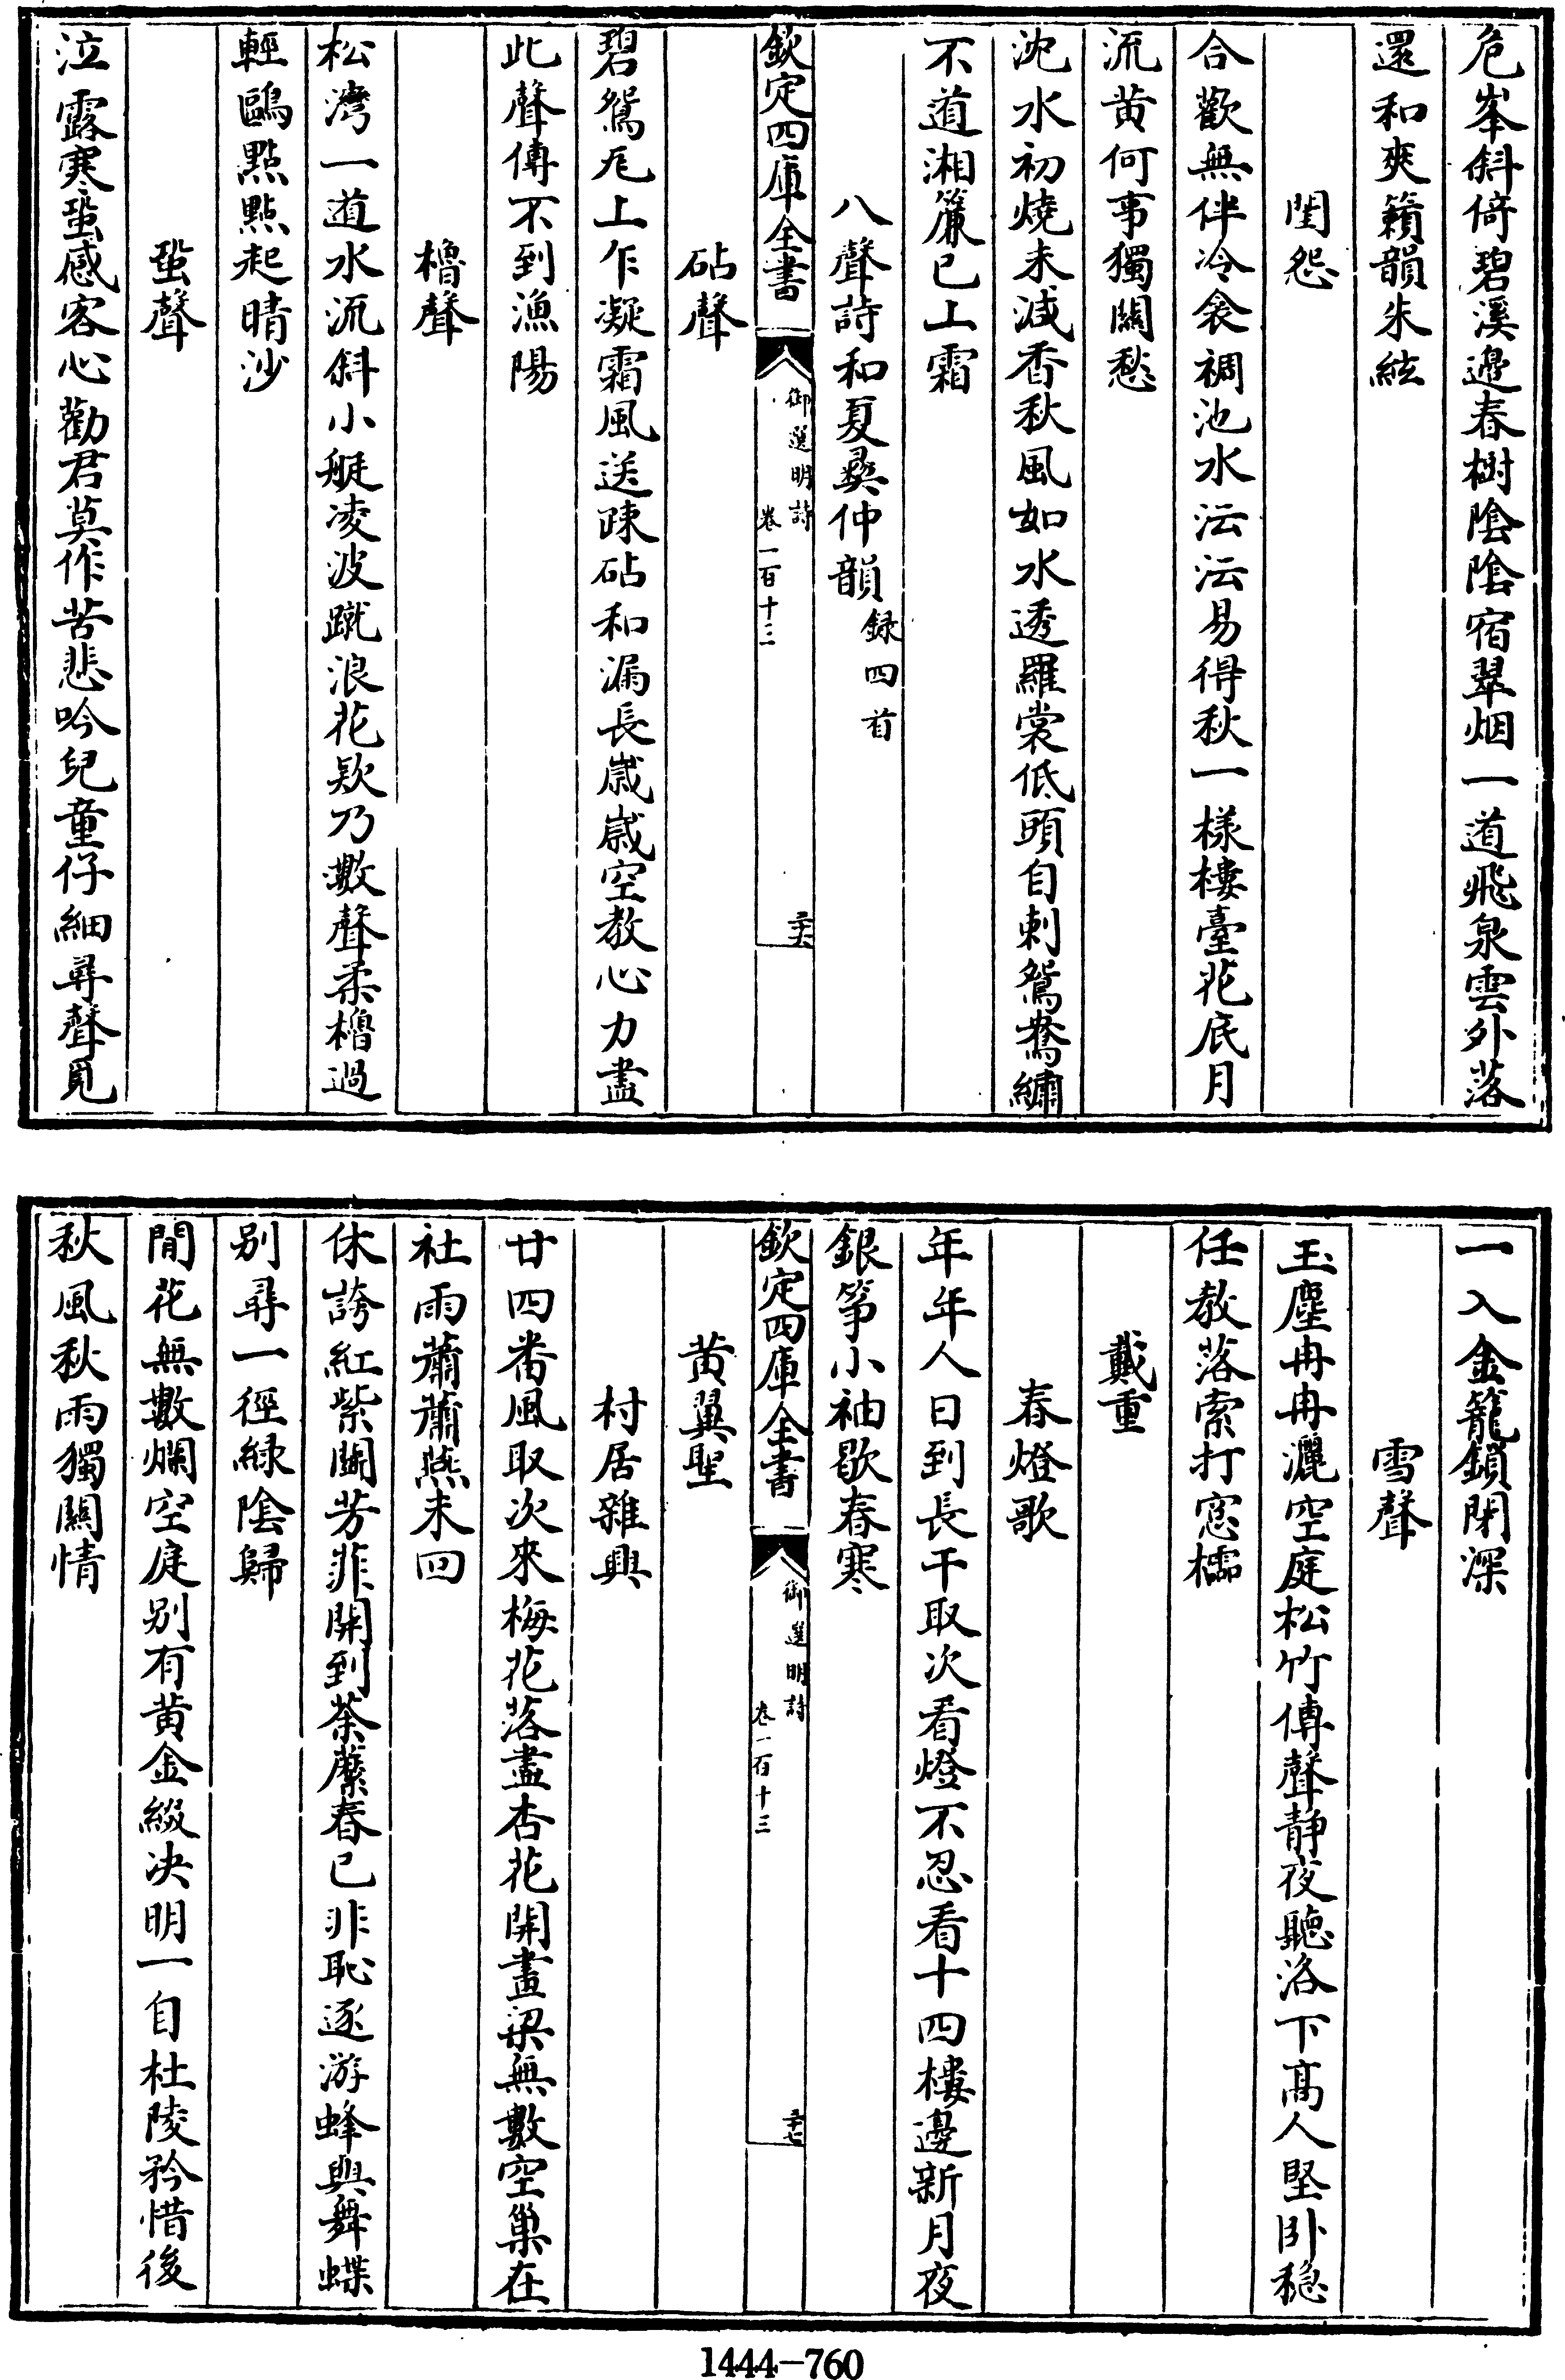 危峯斜倚碧溪邊春樹陰陰宿翠烟一道飛泉雲外落
還和爽籟韻朱絃
閨怨
合歡無伴冷衾裯池水沄沄易得秋一様樓臺花底月
流黄何事獨關愁
沈水初燒未減香秋風如水透羅裳低頭自刺鴛鴦繡
不道湘簾已上霜
八聲詩和夏彛仲韻録四首
欽定四庫全書
御選明詩
卷一百十三
三十六
砧聲
碧鴛瓦上乍凝霜風送疎砧和漏長嵗嵗空教心力盡
此聲傳不到漁陽
櫓聲
松灣一道水流斜小艇凌波蹴浪花欵乃數聲柔櫓過
輕鷗點點起晴沙
蛩聲
泣露寒蛩感客心勸君莫作苦悲吟兒童仔細尋聲覓
一入金籠鎖閉深
雪聲
玉塵冉冉灑空庭松竹傳聲静夜聽洛下高人堅卧穏
任教落索打窓櫺
戴重
春燈歌
年年人日到長干取次看燈不忍看十四樓邊新月夜
銀箏小袖歇春寒
欽定四庫全書
御選明詩
卷一百十三
三十七
黄翼聖
村居雜興
廿四番風取次來梅花落盡杏花開畫梁無數空巢在
社雨蕭蕭燕未回
休誇紅紫鬭芳菲開到荼蘼春已非恥逐游蜂與舞蝶
别尋一徑緑陰歸
閒花無數爛空庭别有黄金綴决明一自杜陵矜惜後
秋風秋雨獨關情
1444-760